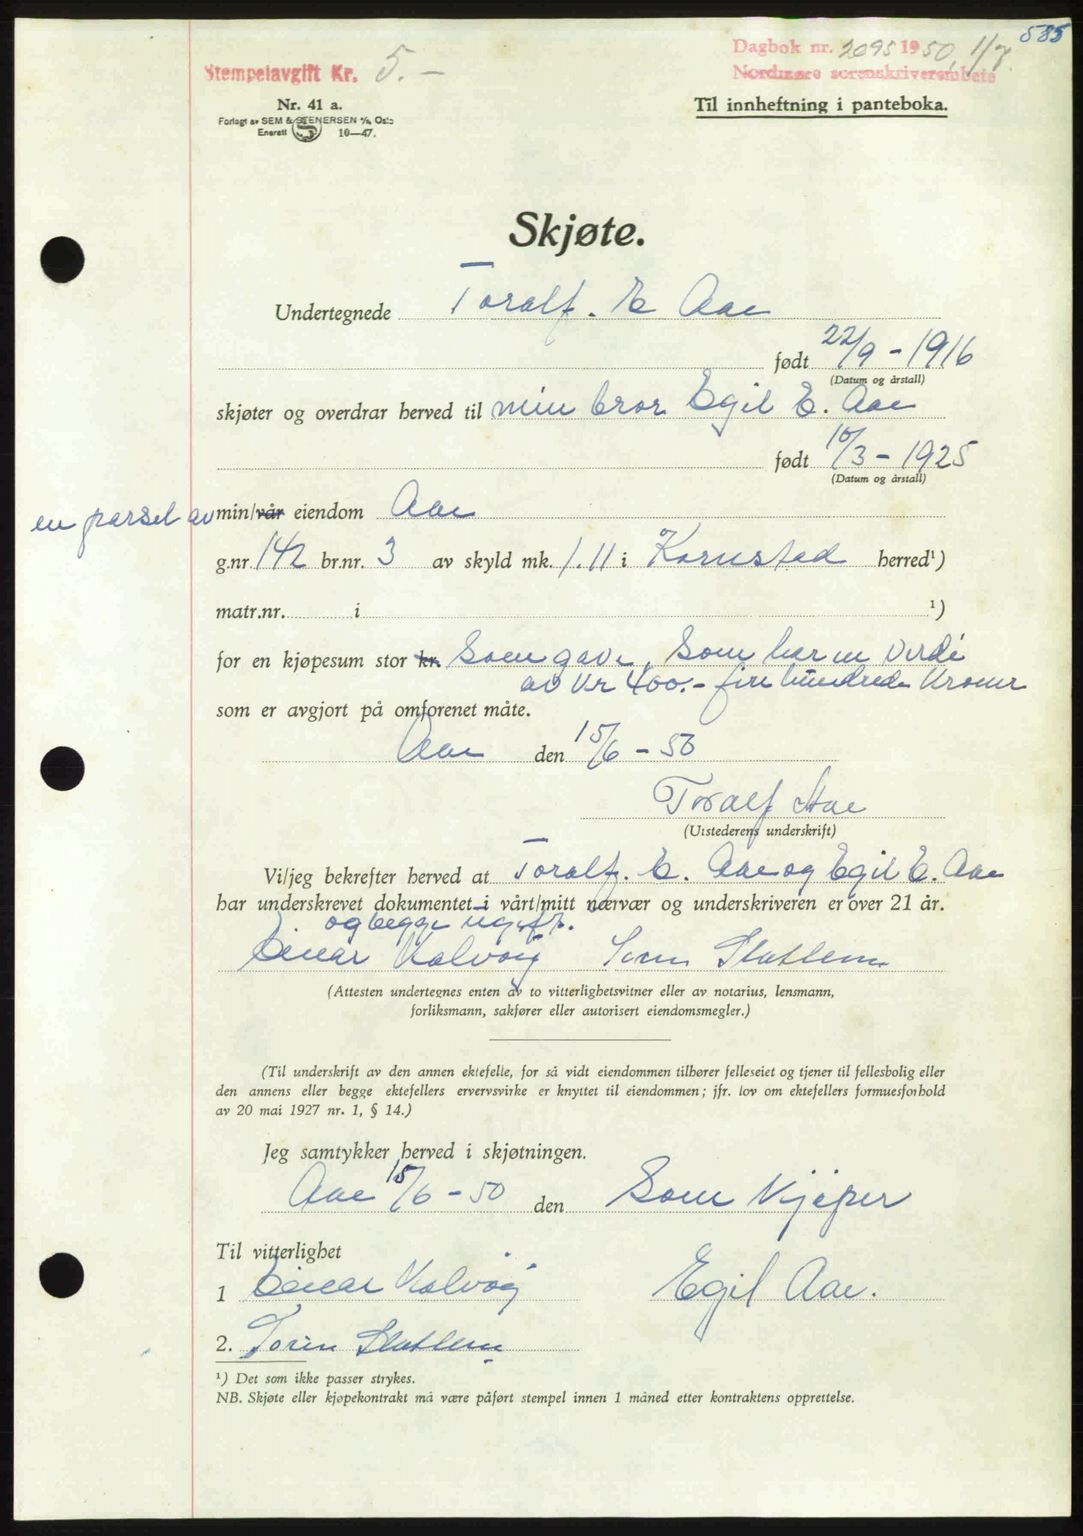 585
Dagbok nr. 2095 1950, 1/7.
Stempelavgift Kr. 5.-
Nordmøre sorenskriverembete
Nr. 41 a.
Til innheftning i panteboka.
Forlagt av SEM & STENERSEN A/S, Oslo
Enerett S 10—47.
Skjøte.
Undertegnede Toralf. E Aae
født 22/9 - 1916
(Datum og årstall)
skjøter og overdrar herved til min bror Egil E. Aae
født 10/3 - 1925
(Datum og årstall)
en parsel av min/vår eiendom Aae
g.nr. 142 br.nr. 3 av skyld mk. 1.11 i Kornstad herred¹)
matr.nr. i ¹)
for en kjøpesum stor kr. Som gave, Som har en Verdi
av Kr 400.- fire hundrede Kroner
som er avgjort på omforenet måte.
Aae den 15/6 - 50
Toralf Aae
(Utstederens underskrift)
Vi/jeg bekrefter herved at Toralf. E. Aae og Egil E. Aae
har underskrevet dokumentet i vårt/mitt nærvær og underskriveren er over 21 år.
og begge ugift.
Einar Kalvøy Søren Statlem
(Attesten undertegnes enten av to vitterlighetsvitner eller av notarius, lensmann,
forliksmann, sakfører eller autorisert eiendomsmegler.)
(Til underskrift av den annen ektefelle, for så vidt eiendommen tilhører felleseiet og tjener til fellesbolig eller
den annens eller begge ektefellers ervervsvirke er knyttet til eiendommen; jfr. lov om ektefellers formuesforhold
av 20 mai 1927 nr. 1, § 14.)
Jeg samtykker herved i skjøtningen.
Aae 15/6 - 50 den Som Kjøper
Til vitterlighet
1 Einar Kalvøy Egil Aae.
2. Søren Statlem
¹) Det som ikke passer strykes.
NB. Skjøte eller kjøpekontrakt må være påført stempel innen 1 måned etter kontraktens opprettelse.